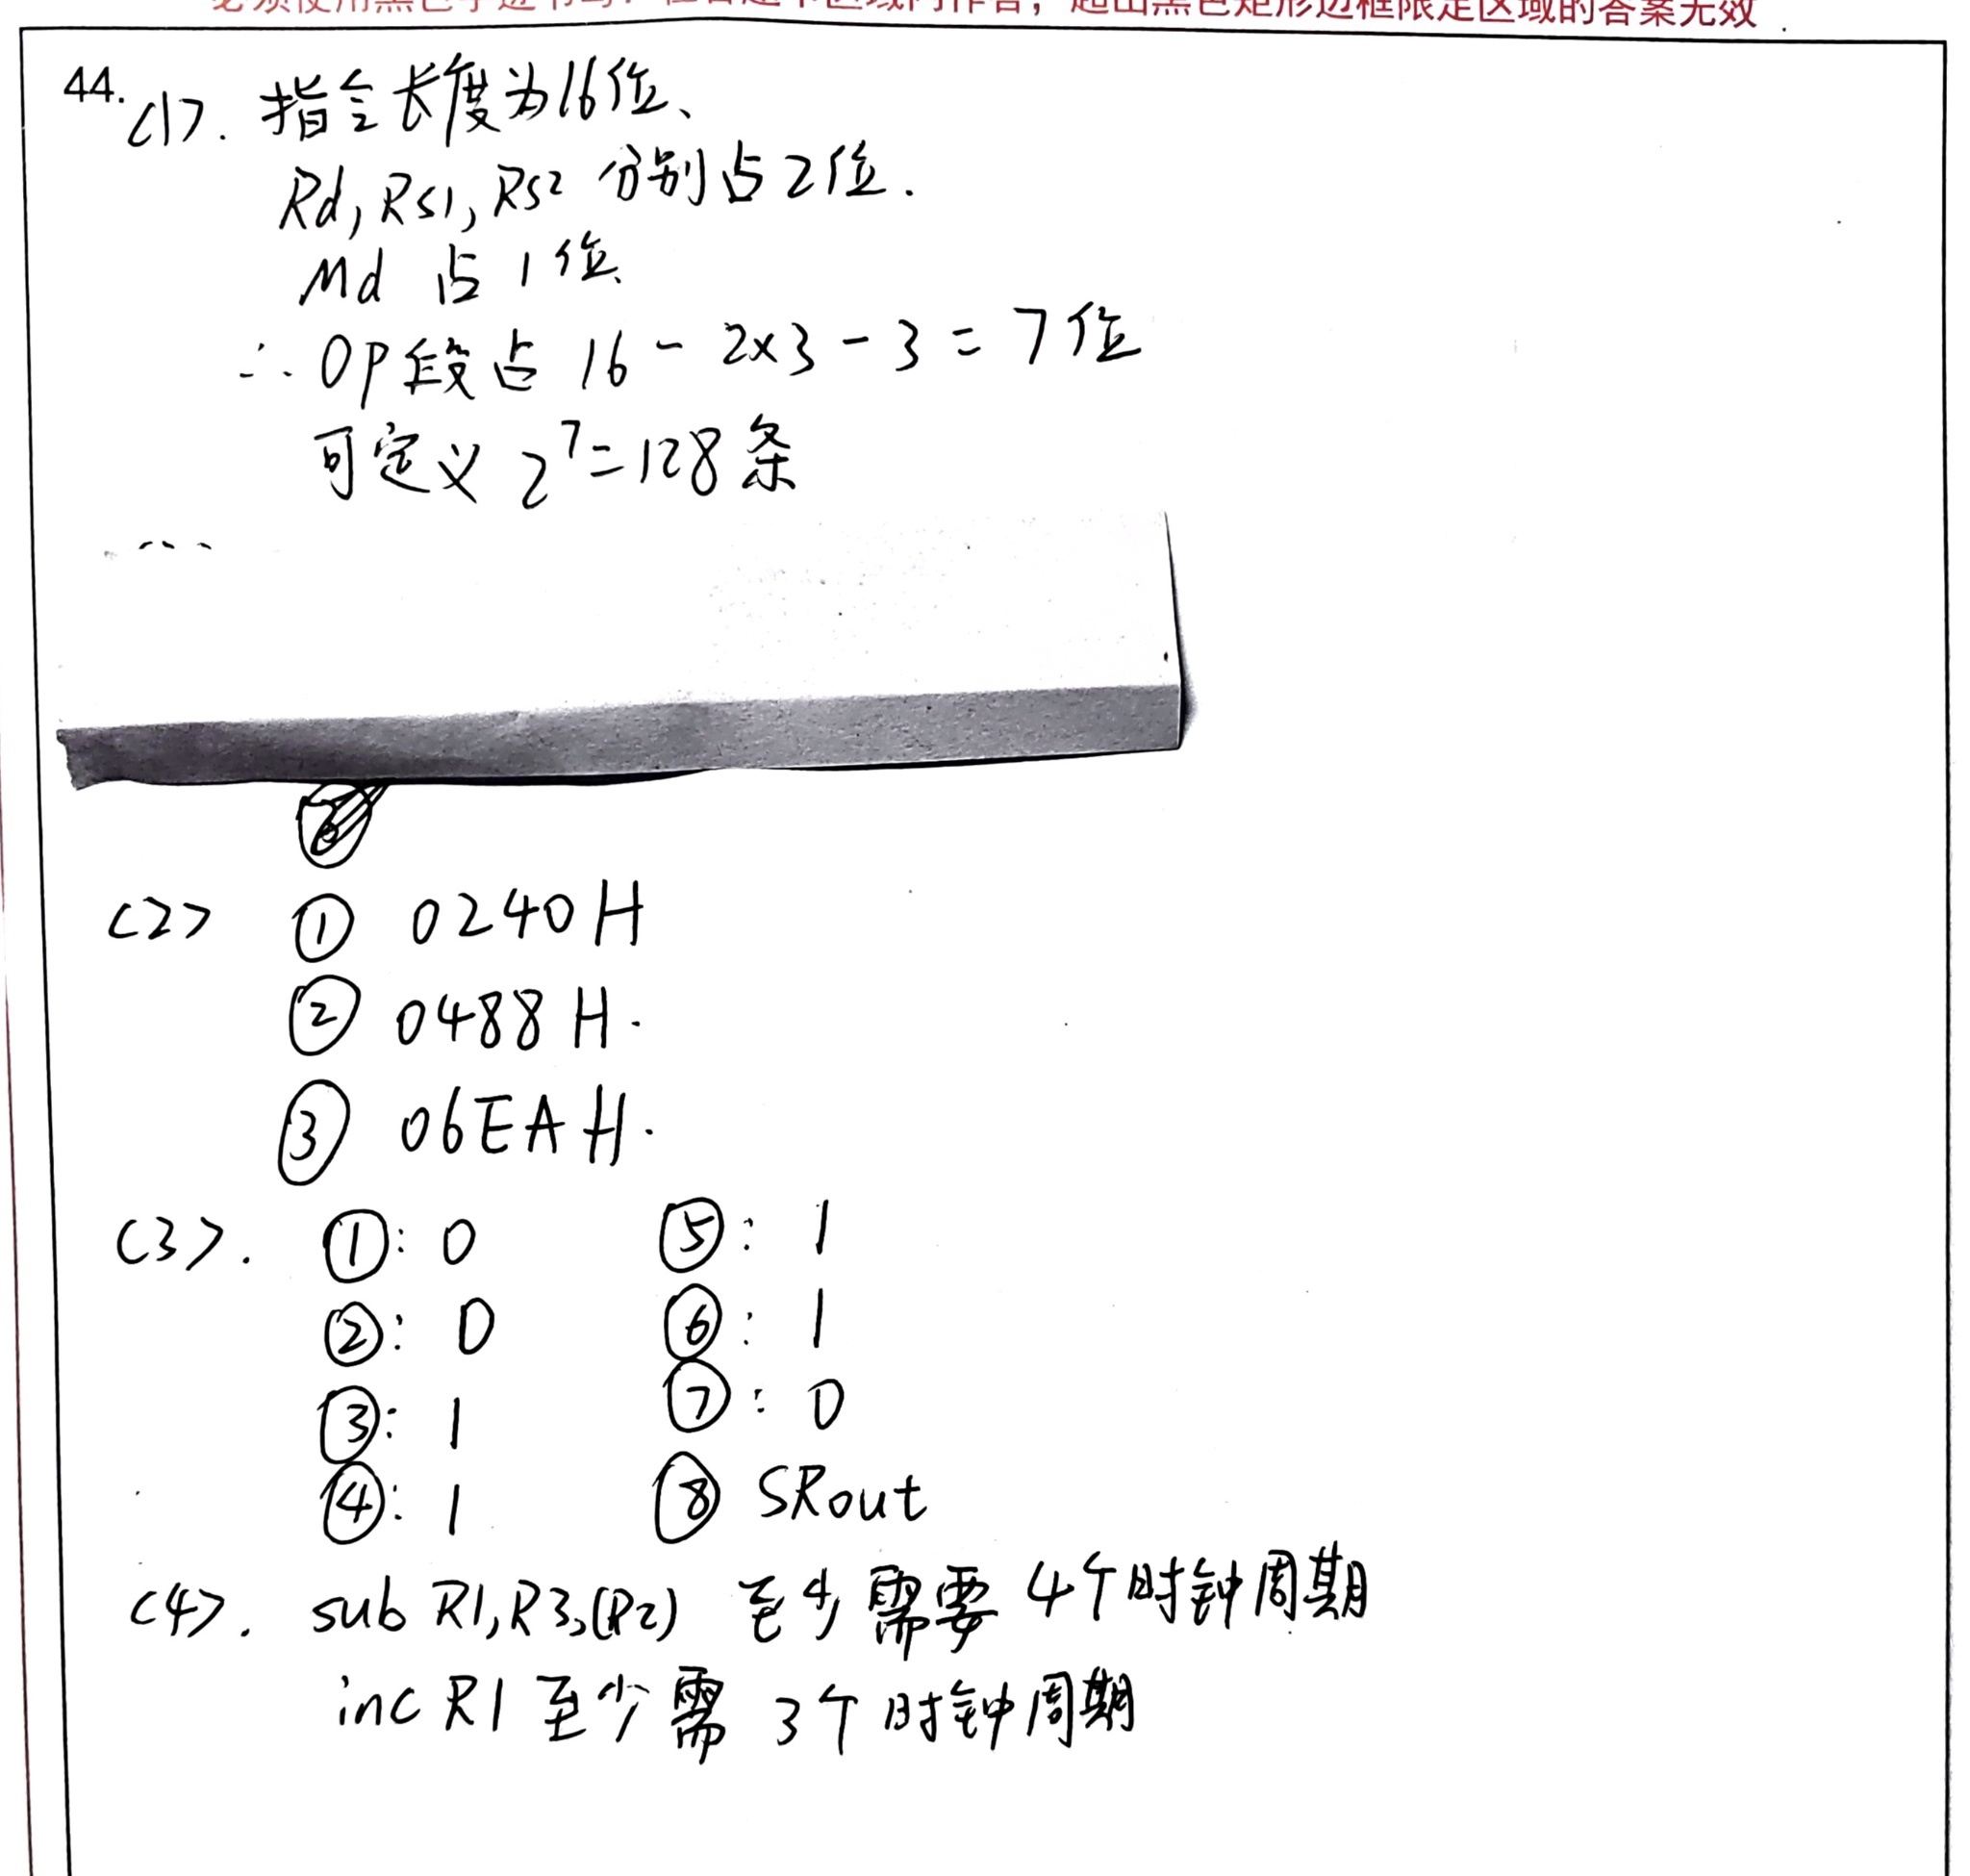 必须使用黑色字迹书写，在答题卡区域内作答，超出黑色矩形边框限定区域的答案无效
44.
(1). 指令长度为16位、
Rd, RS1, RS2 分别占2位.
Md 占1位.
∴ OP段占 16 - 2×3 - 3 = 7位
可定义 2⁷=128条
(2) ① 0240H
② 0488H.
③ 06EAH.
(3). ①: 0 ⑤: 1
②: 0 ⑥: 1
③: 1 ⑦: 0
④: 1 ⑧ SRout
(4). sub R1,R3,(R2) 至少需要4个时钟周期
inc R1 至少需 3个时钟周期